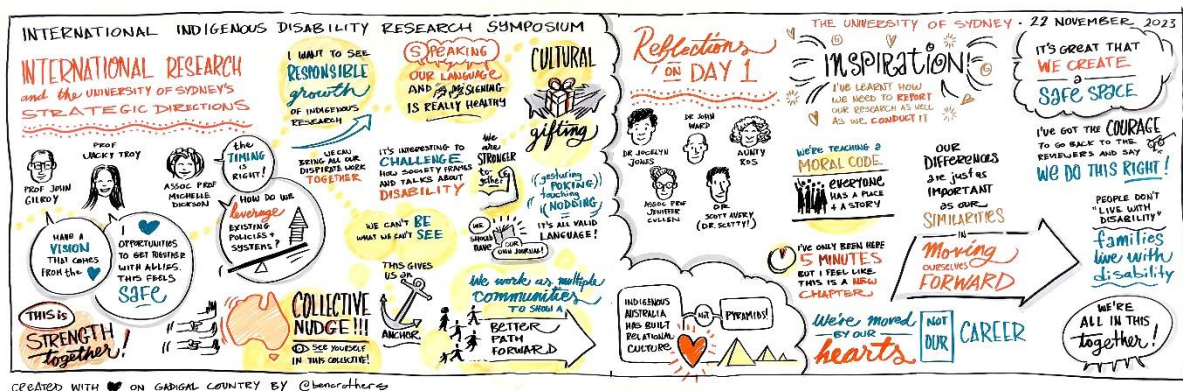 INTERNATIONAL INDIGENOUS DISABILITY RESEARCH SYMPOSIUM
THE UNIVERSITY OF SYDNEY · 22 NOVEMBER 2023
INTERNATIONAL RESEARCH
and the UNIVERSITY OF SYDNEY'S
STRATEGIC DIRECTIONS
PROF JOHN
GILROY
PROF
JACKY TROY
ASSOC PROF
MICHELLE
DICKSON
HAVE A
VISION
THAT COMES
FROM the
I
OPPORTUNITIES
TO GET TOGETHER
WITH ALLIES.
THIS FEELS
SAFE
THIS is
STRENGTH
together!
the
TIMING
IS
RIGHT!
HOW DO WE
leverage
EXISTING
POLICIES +
SYSTEMS?
I WANT TO SEE
RESPONSIBLE
growth
OF INDIGENOUS
RESEARCH
WE CAN
BRING ALL OUR
DISPIRATE WORK
TOGETHER
COLLECTIVE
NUDGE!!!
SEE YOURSELF
IN THIS COLLECTIVE!
SPEAKING
OUR LANGUAGE
AND SIGNING
IS REALLY HEALTHY
IT'S INTERESTING TO
CHALLENGE
HOW SOCIETY FRAMES
AND TALKS ABOUT
DISABILITY
WE CAN'T BE
WHAT WE CAN'T SEE
THIS GIVES
US an
ANCHOR.
We are
STRONGER
together
WE
SHOULD
HAVE
OUR
OWN JOURNAL!
We work as multiple
communities
TO SHOW A
BETTER
PATH
FORWARD
CULTURAL
gifting
gesturing
POKING
touching
NODDING
=
IT'S ALL VALID
LANGUAGE!
Reflections
ON DAY 1
DR JOCELYN
JONES
DR JOHN
WARD
AUNTY
ROS
ASSOC PROF
JENNIFER
CULLEN
DR
SCOTT AVERY
(DR SCOTTY!)
INDIGENOUS
AUSTRALIA
HAS BUILT
RELATIONAL
CULTURE
NOT
PYRAMIDS!
INSPIRATION!
I'VE LEARNT HOW
WE NEED TO REPORT
OUR RESEARCH AS WELL
AS WE CONDUCT IT
We're TEACHING a
MORAL CODE.
EVERYONE
HAS A PLACE
+ A STORY
I'VE ONLY BEEN HERE
5 MINUTES
BUT I FEEL LIKE
THIS IS A NEW
CHAPTER
We're MOVED
BY OUR
hearts
NOT
OUR
CAREER
OUR
DIFFERENCES
are just as
IMPORTANT
as OUR
SIMILARITIES
IN
Moving
OURSELVES
FORWARD
IT'S GREAT THAT
WE CREATE
a
SAFE SPACE
I'VE GOT THE COURAGE
TO GO BACK TO THE
REVIEWERS AND SAY
WE DO THIS RIGHT!
PEOPLE DON'T
"LIVE WITH
DISABILITY"
families
live with
disability
WE'RE
ALL IN THIS
together!
CREATED WITH ON GADIGAL COUNTRY BY @bencrothers